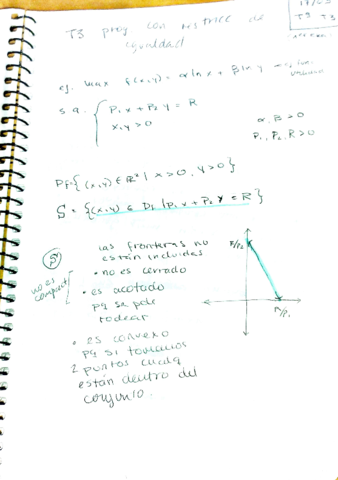 T3 prog con restricc de
igualdad
ej. max f(x,y) = α ln x + β ln y
s.a. { P₁ x + P₂ y = R
x, y > 0
α, β > 0
P₁, P₂, R > 0
Df = { (x,y) ∈ R² | x > 0, y > 0 }
S = { (x,y) ∈ Df | P₁ x + P₂ y = R }
S
no es
compact
las fronteras no
están incluidas
• no es cerrado
• es acotado
pq se pde
rodear
• es convexo
pq si tomamos
2 puntos cualq
están dentro del
conjunto.
R/P₂
R/P₁